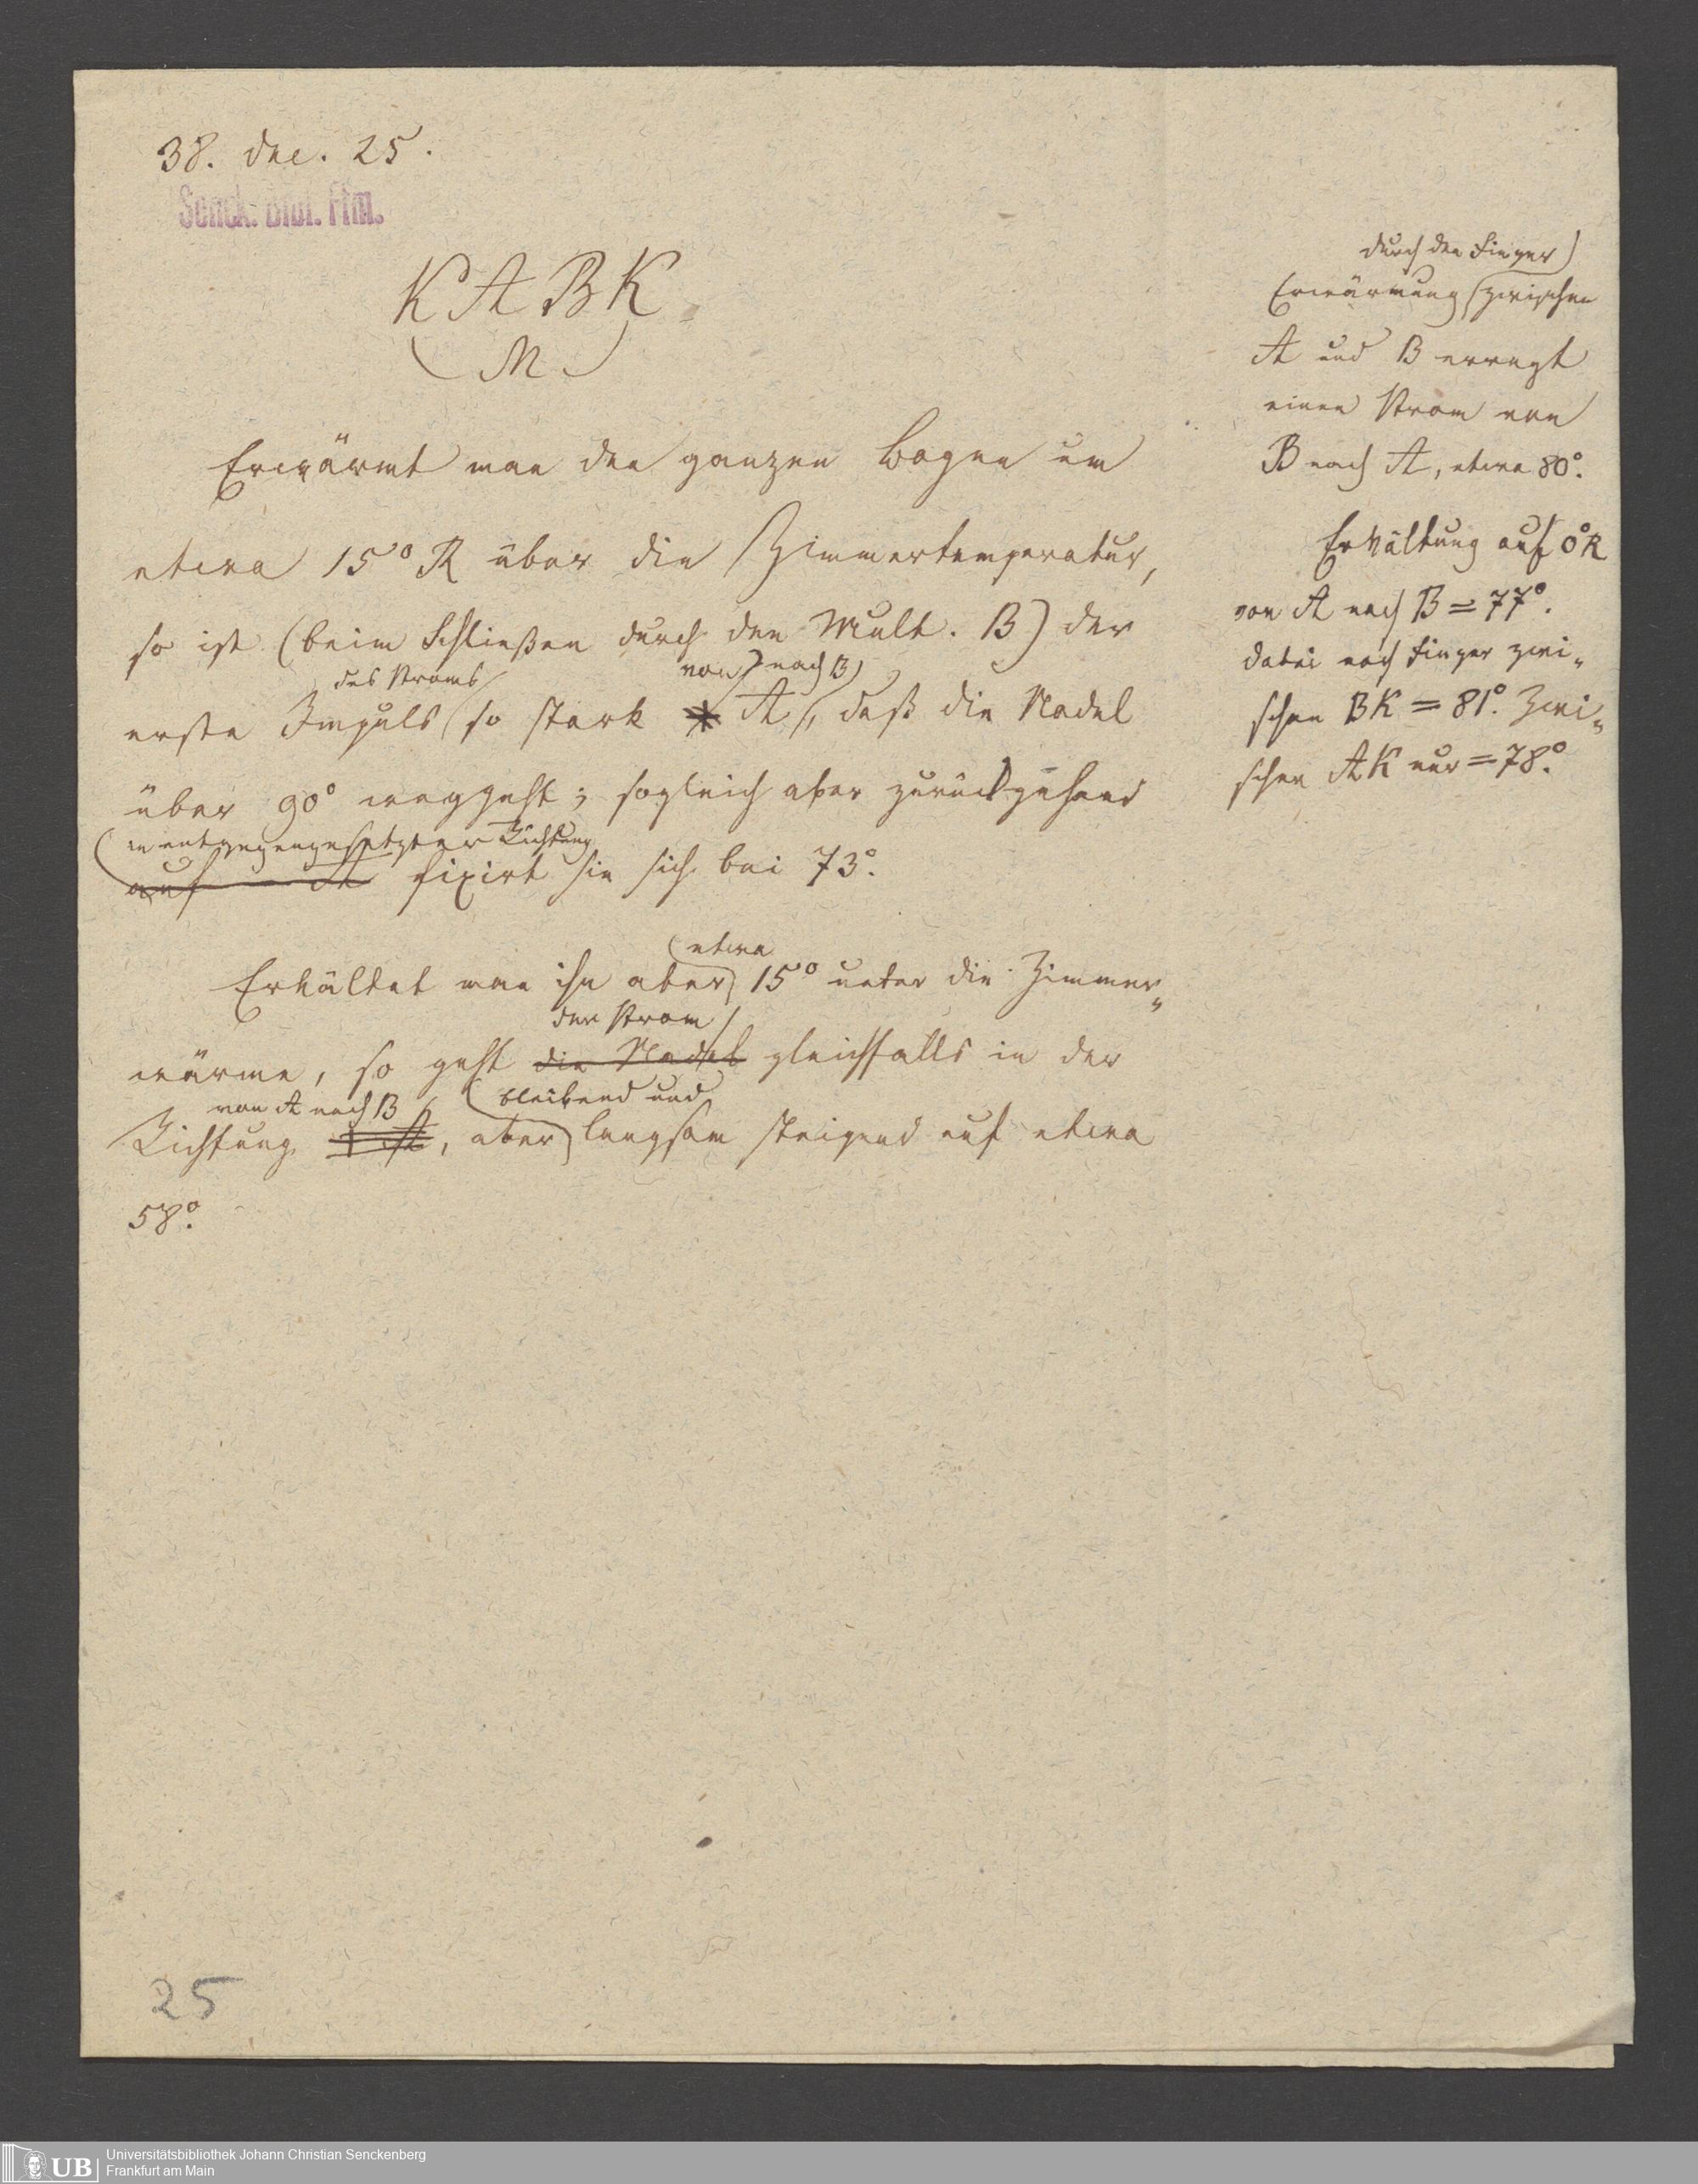 38. Dec. 25.
Senck. Bibl. Ffm.
K A B K.
M
Erwärmt man den ganzen Bogen um
etwa 15° R über die Zimmertemperatur,
so ist (beim Schließen durch den Mult. B) der
des Stroms von nach B
erste Impuls so stark A, daß die Nadel
über 90° weggeht; sogleich aber zurückgehend
in entgegengesetzter Richtung
auf A fixirt sie sich bei 73°.
etwa
Erkältet man ihn aber 15° unter die Zimmer„
der Strom
wärme, so geht die Nadel gleichfalls in der
von A nach B bleibend und
Richtung A, aber langsam steigend auf etwa
58°.
durch den Finger
Erwärmung zwischen
A und B erregt
einen Strom von
B nach A, etwa 80°.
Erkältung auf 0° R
von A nach B = 77°.
dabei noch Finger zwi„
schen BK = 81°. Zwi„
schen AK nur = 78°.
25
UB
Universitätsbibliothek Johann Christian Senckenberg
Frankfurt am Main